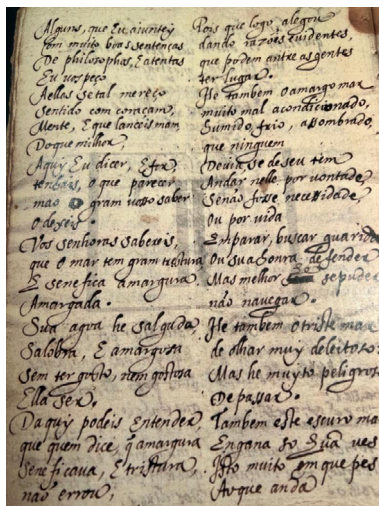 Alguns, que Eu aiuntey
Com muito boas sentenças
De philosophos, E atentas
Eu vos peço
Aellas se tal mereço
Sentido com coraçam,
Mente, E que lanceis mam
Do que milhor,
Aquy Eu dicer, E
tenhais, o que parecer,
mao o gram vosso saber
O deseis.
Vos senhoras sabereis,
que o mar tem gram tristura
E senefica amargura
Amargada.
Sua agoa he salguda,
Salobra, E amargosa
Sem ter gosto, nem gostosa
Ella ser.
Daquy podeis entender,
que quem dice, q amargura
Seneficava, E tristura,
não errou,
Pois que logo, alegou
dando razois evidentes,
que podem antre as gentes
ter lugar.
He tambem o amargo mar
muito mal acondicionado,
Sumido, frio, assombrado,
que ninguem
Devia, se de seu tem
Andar nelle por vontade,
Senão fosse necesidade,
Ou por vida
Emparar, buscar guarida
Ou sua honra defender
Mas melhor se puder
não navegar.
He tambem o triste mar
de olhar muy deleitoso
Mas he muyto peligroso
De passar.
Tambem este escuro mar
Engana so sua ves
Isto muito, em que pes
Ao que anda